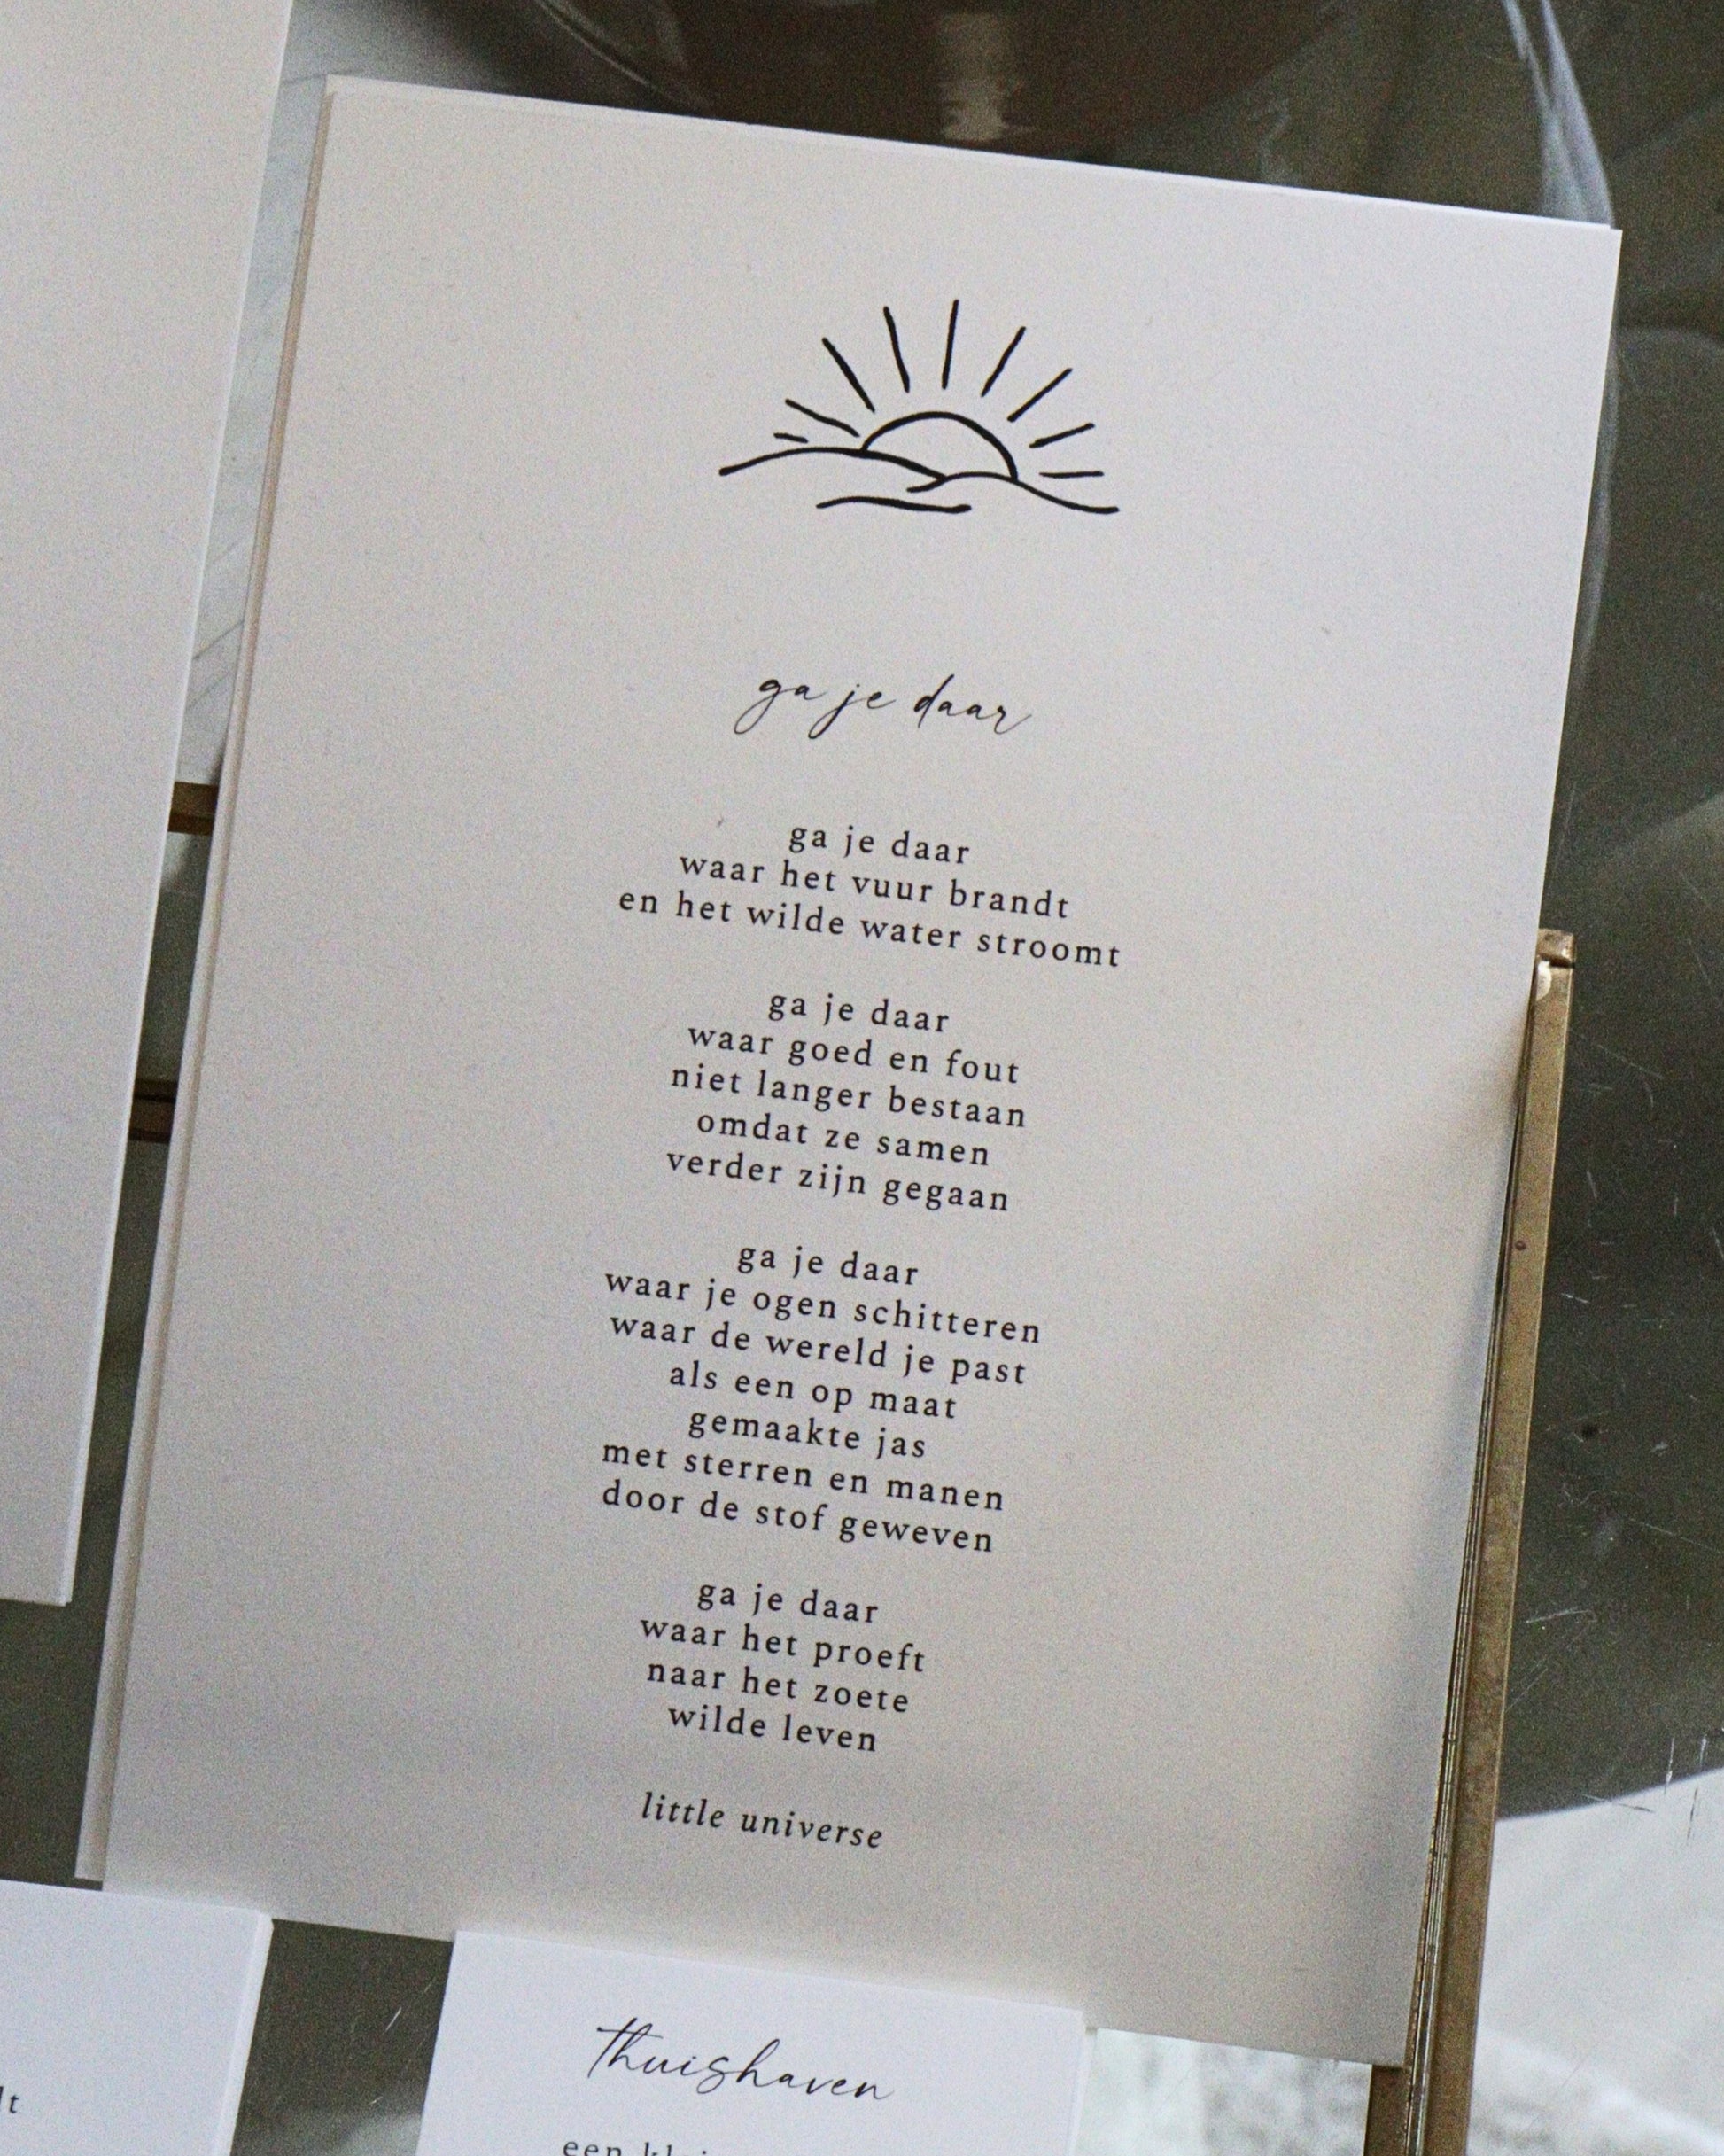 ga je daar
ga je daar
waar het vuur brandt
en het wilde water stroomt
ga je daar
waar goed en fout
niet langer bestaan
omdat ze samen
verder zijn gegaan
ga je daar
waar je ogen schitteren
waar de wereld je past
als een op maat
gemaakte jas
met sterren en manen
door de stof geweven
ga je daar
waar het proeft
naar het zoete
wilde leven
little universe
thuishaven
een